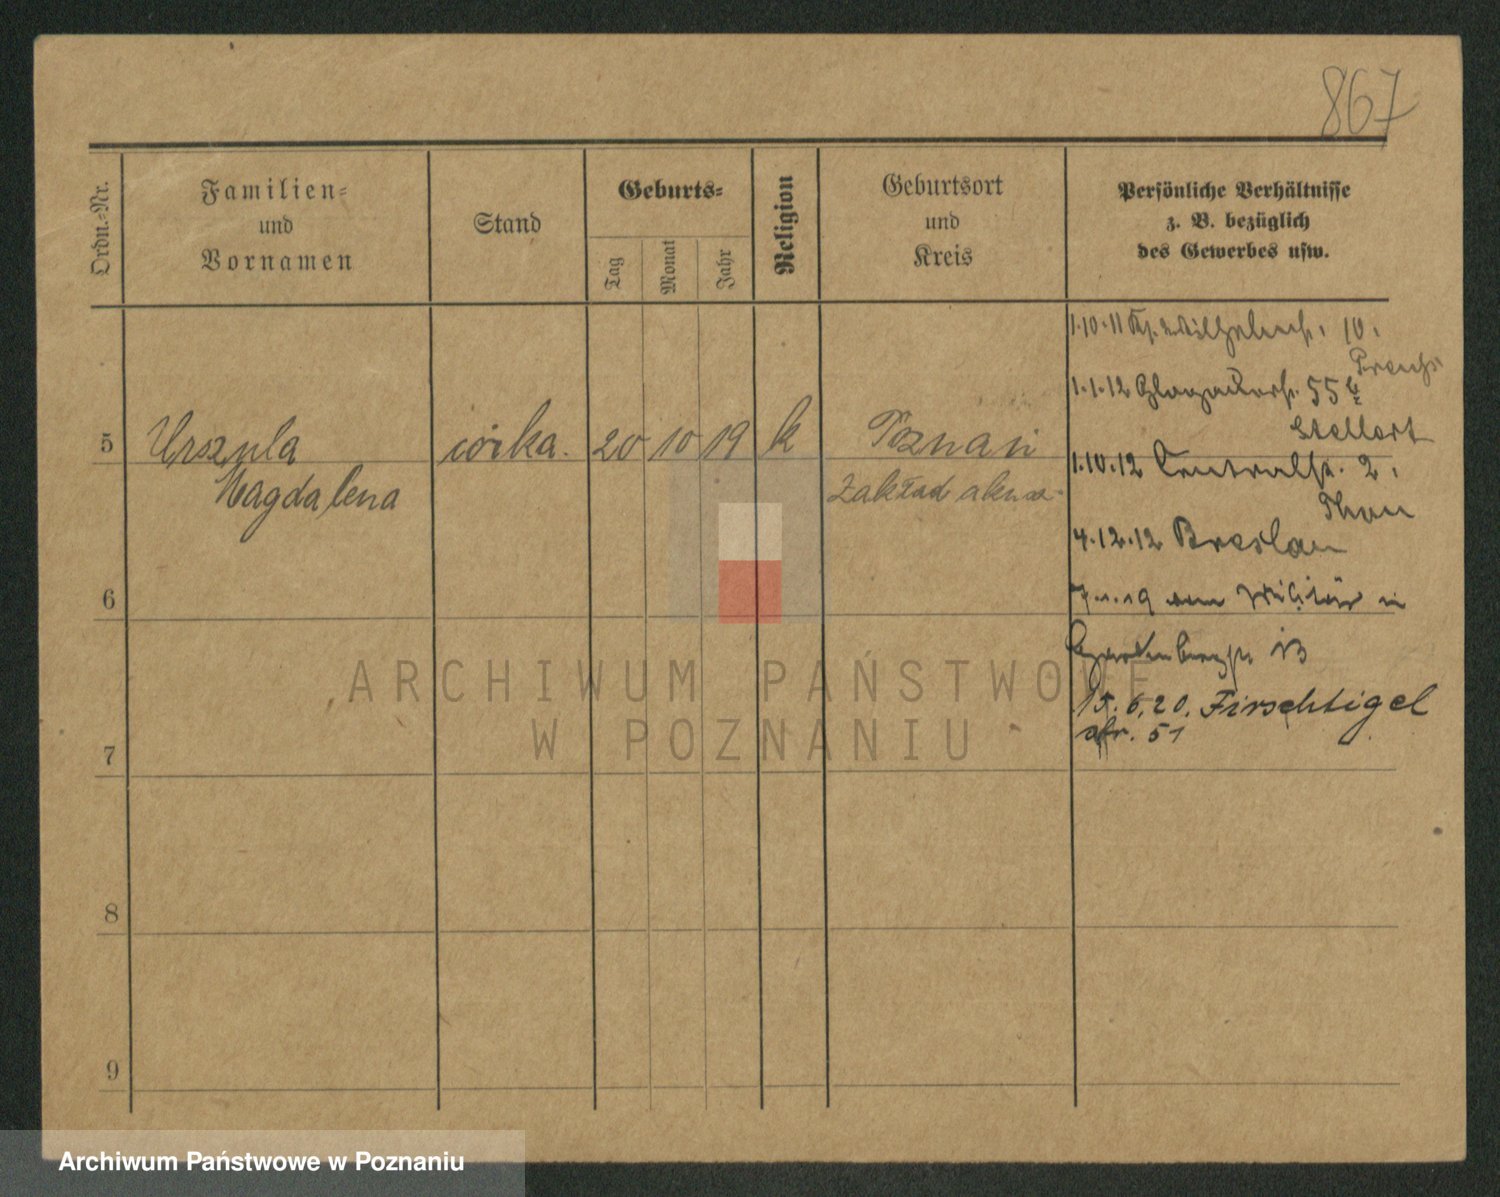 867
Ordn.-Nr.
Familien-
und
Vornamen
Stand
Geburts-
Tag
Monat
Jahr
Religion
Geburtsort
und
Kreis
Persönliche Verhältnisse
z. B. bezüglich
des Gewerbes usw.
1.10.11 10.
1.1.12 Glogauerstr. 55
5 Urszula córka. 20 10 19 k Poznań
Magdalena
Zakład
1.10.12 Centralstr. 2.
4.12.12 Breslau
6
7.1.19 vom Militär in
15.6.20. Firschtigel
str. 51
7
8
9
ARCHIWUM PAŃSTWOWE
W POZNANIU
Archiwum Państwowe w Poznaniu